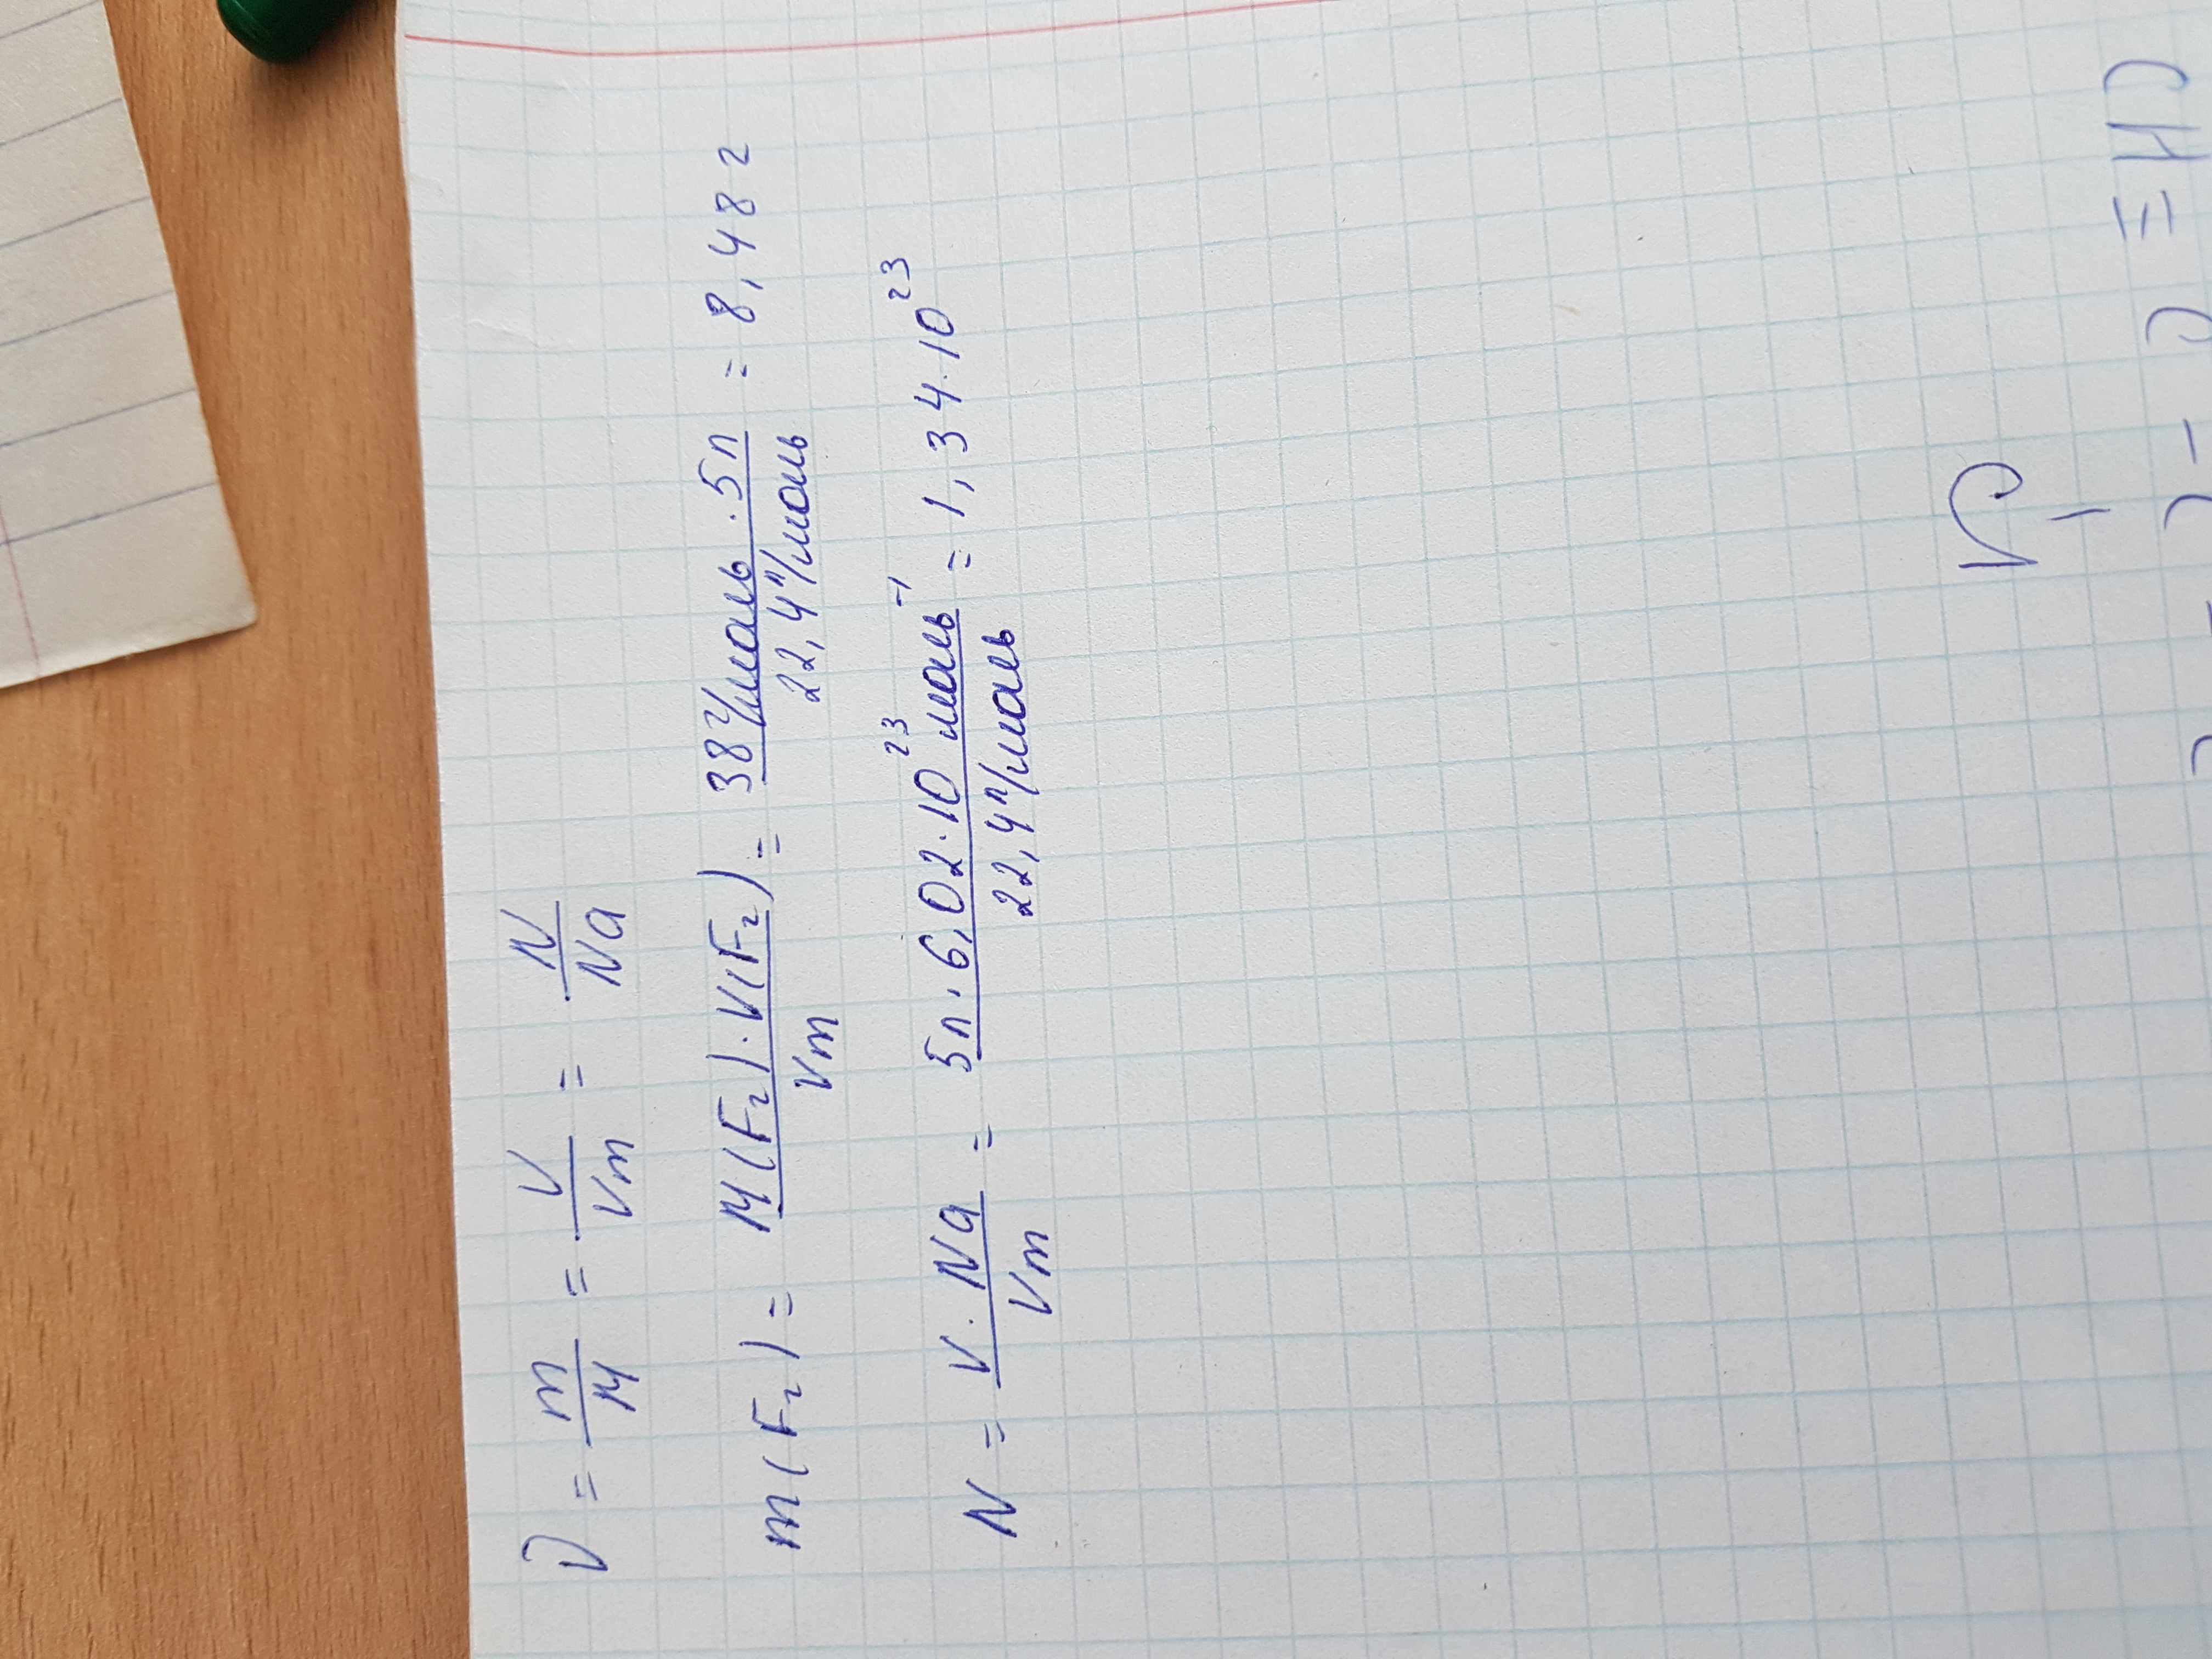 ν = m/M = V/Vm = N/Na
m(F₂) = M(F₂)·V(F₂)/Vm = 38 г/моль·5л/22,4 л/моль = 8,48 г
N = V·Na/Vm = 5л·6,02·10²³ моль⁻¹/22,4 л/моль = 1,34·10²³
≡ CH